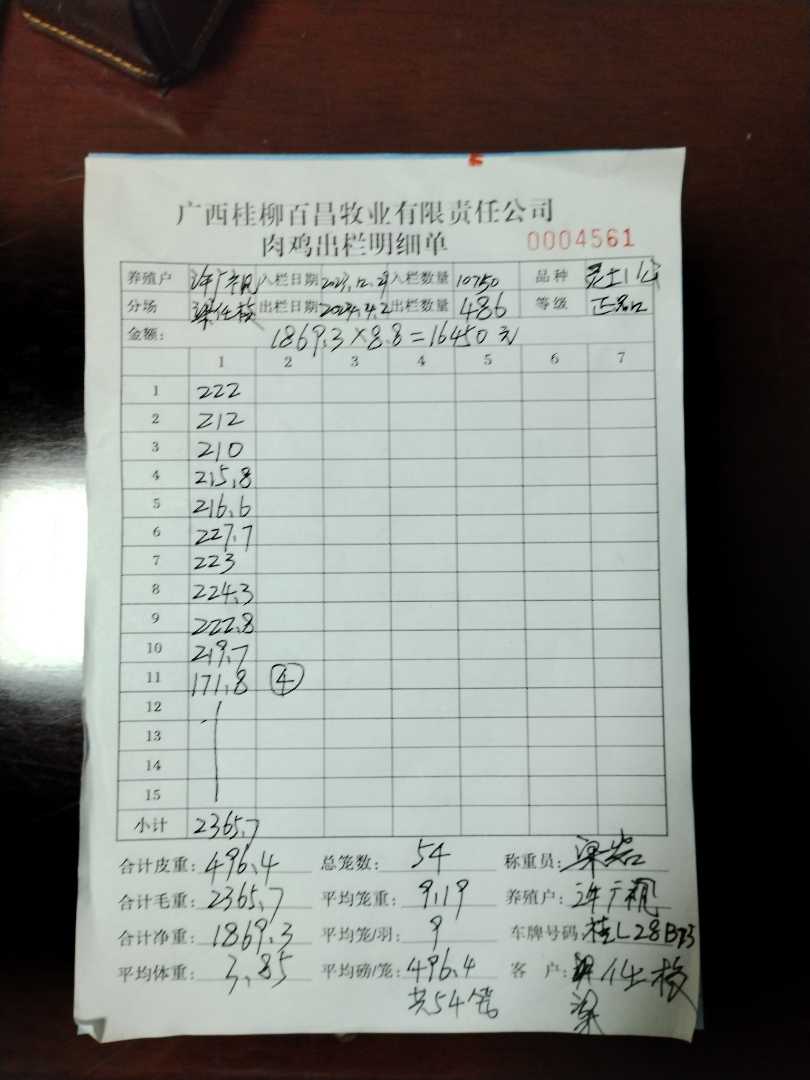 广西桂柳百昌牧业有限责任公司
肉鸡出栏明细单 0004561
养殖户 许广 入栏日期 2023.12.29 入栏数量 10750 品种
分场 梁仕 出栏日期 2024.4.2 出栏数量 486 等级 正品
金额: 1869.3×8.8=16450元
1 2 3 4 5 6 7
1 222
2 212
3 210
4 215.8
5 216.6
6 227.7
7 223
8 224.3
9 222.8
10 219.7
11 171.8 ④
12
13
14
15
小计 2365.7
合计皮重: 496.4 总笼数: 54 称重员: 梁
合计毛重: 2365.7 平均笼重: 9.19 养殖户: 许广
合计净重: 1869.3 平均笼/羽: 9 车牌号码: 桂L28B
平均体重: 3.85 平均磅/笼: 496.4 客 户: 仕
共54笼 梁